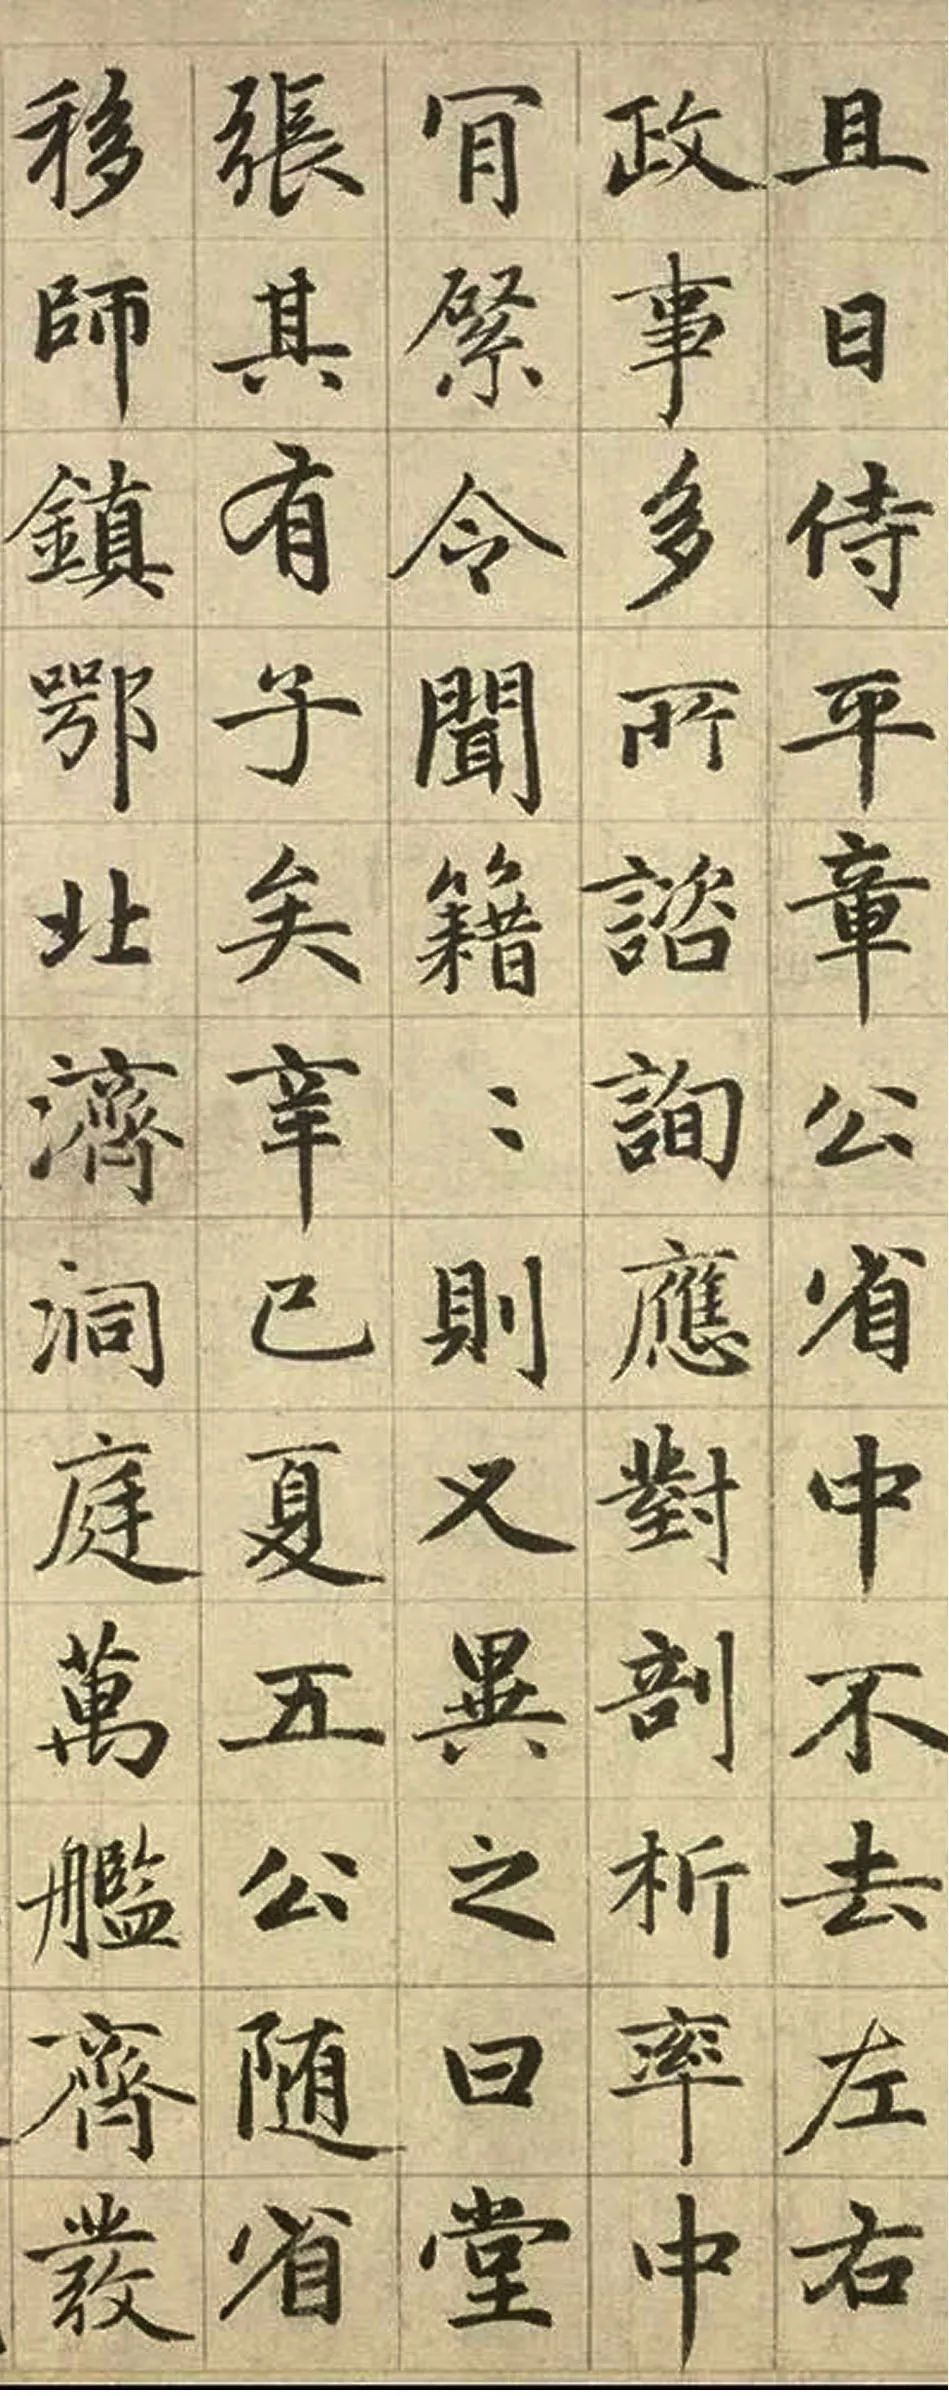 且日侍平章公省中不去左右
政事多所諮詢應對剖析率中
肎綮令聞籍〻則又異之曰堂
張其有子矣辛已夏五公随省
移師鎮鄂北濟洞庭萬艦齊發